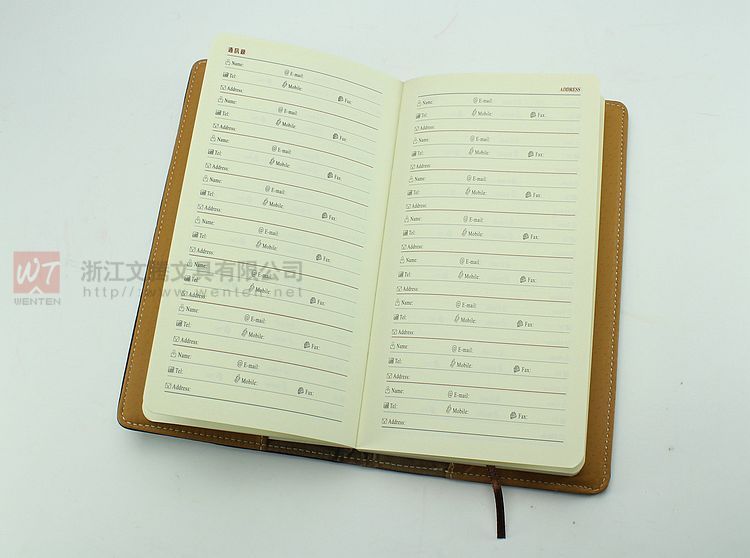 通訊錄
Name: E-mail:
Tel: Mobile: Fax:
Address:
Name: E-mail:
Tel: Mobile: Fax:
Address:
Name: E-mail:
Tel: Mobile: Fax:
Address:
Name: E-mail:
Tel: Mobile: Fax:
Address:
Name: E-mail:
Tel: Mobile: Fax:
Address:
Name: E-mail:
Tel: Mobile: Fax:
Address:
Name: E-mail:
Tel: Mobile: Fax:
Address:
Name: E-mail:
Tel: Mobile: Fax:
Address:
ADDRESS
Name: E-mail:
Tel: Mobile: Fax:
Address:
Name: E-mail:
Tel: Mobile: Fax:
Address:
Name: E-mail:
Tel: Mobile: Fax:
Address:
Name: E-mail:
Tel: Mobile: Fax:
Address:
Name: E-mail:
Tel: Mobile: Fax:
Address:
Name: E-mail:
Tel: Mobile: Fax:
Address:
Name: E-mail:
Tel: Mobile: Fax:
Address:
Name: E-mail:
Tel: Mobile: Fax:
Address:
WT
WENTEN
浙江文腾文具有限公司
http://www.wenten.net